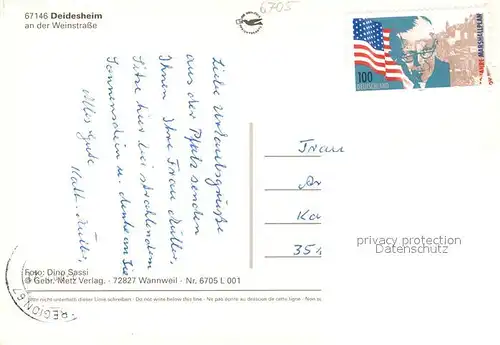 67146 Deidesheim
an der Weinstraße
6705
50 JAHRE MARSHALLPLAN
100
DEUTSCHLAND
Liebe Urlaubsgrüße
aus der Pfalz senden
Ihnen Ihre Frau Müller,
Sitze hier bei strahlendem
Sonnenschein u. denke an Sie
Alles Gute
Kath. Müller,
Frau
Ka
354
privacy protection
Datenschutz
Foto: Dino Sassi
© Gebr. Metz Verlag. - 72827 Wannweil - Nr. 6705 L 001
Bitte nicht unterhalb dieser Linie schreiben - Do not wrtie below this line - Ne pas ecrire au dessous de cette ligne - Non
REGION 67